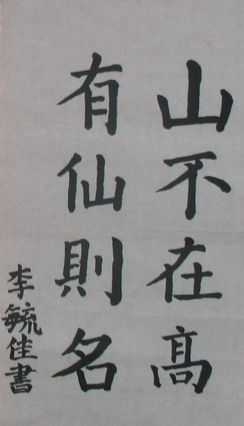 山不在高
有仙則名
李毓佳書